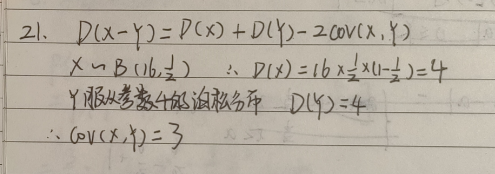 21. D(X-Y)=D(X)+D(Y)-2cov(X,Y)
X~B(16,1/2) ∴ D(X)=16×1/2×(1-1/2)=4
Y服从参数4的泊松分布 D(Y)=4
∴ cov(X,Y)=3